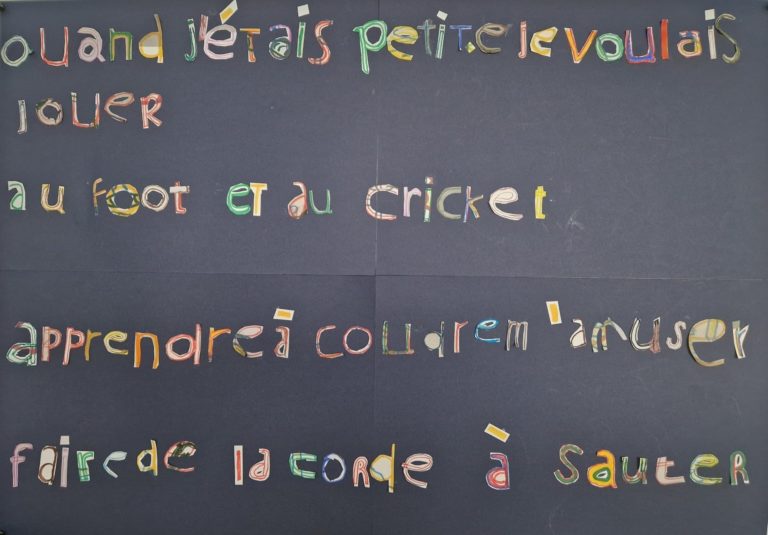 quand j'étais petite je voulais
jouer
au foot et au cricket
apprendre à coudre m'amuser
faire de la corde à sauter